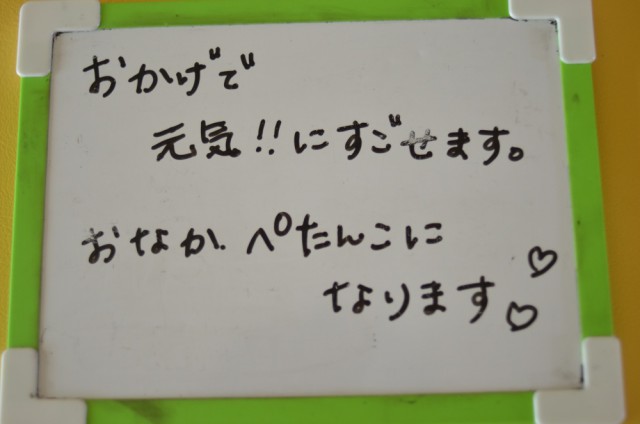 おかげで
元気!!にすごせます。
おなかぺたんこに
なります♡♡